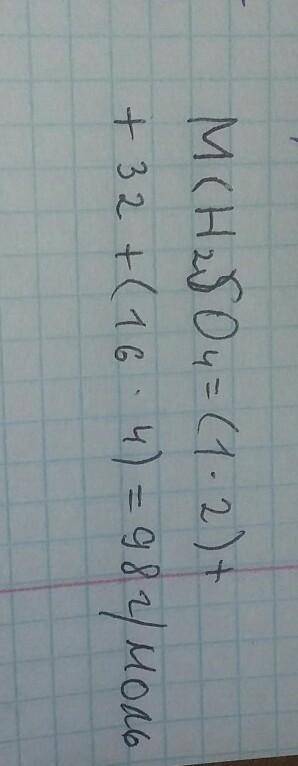 M(H₂SO₄=(1·2)+
+32+(16·4)=98г/моль